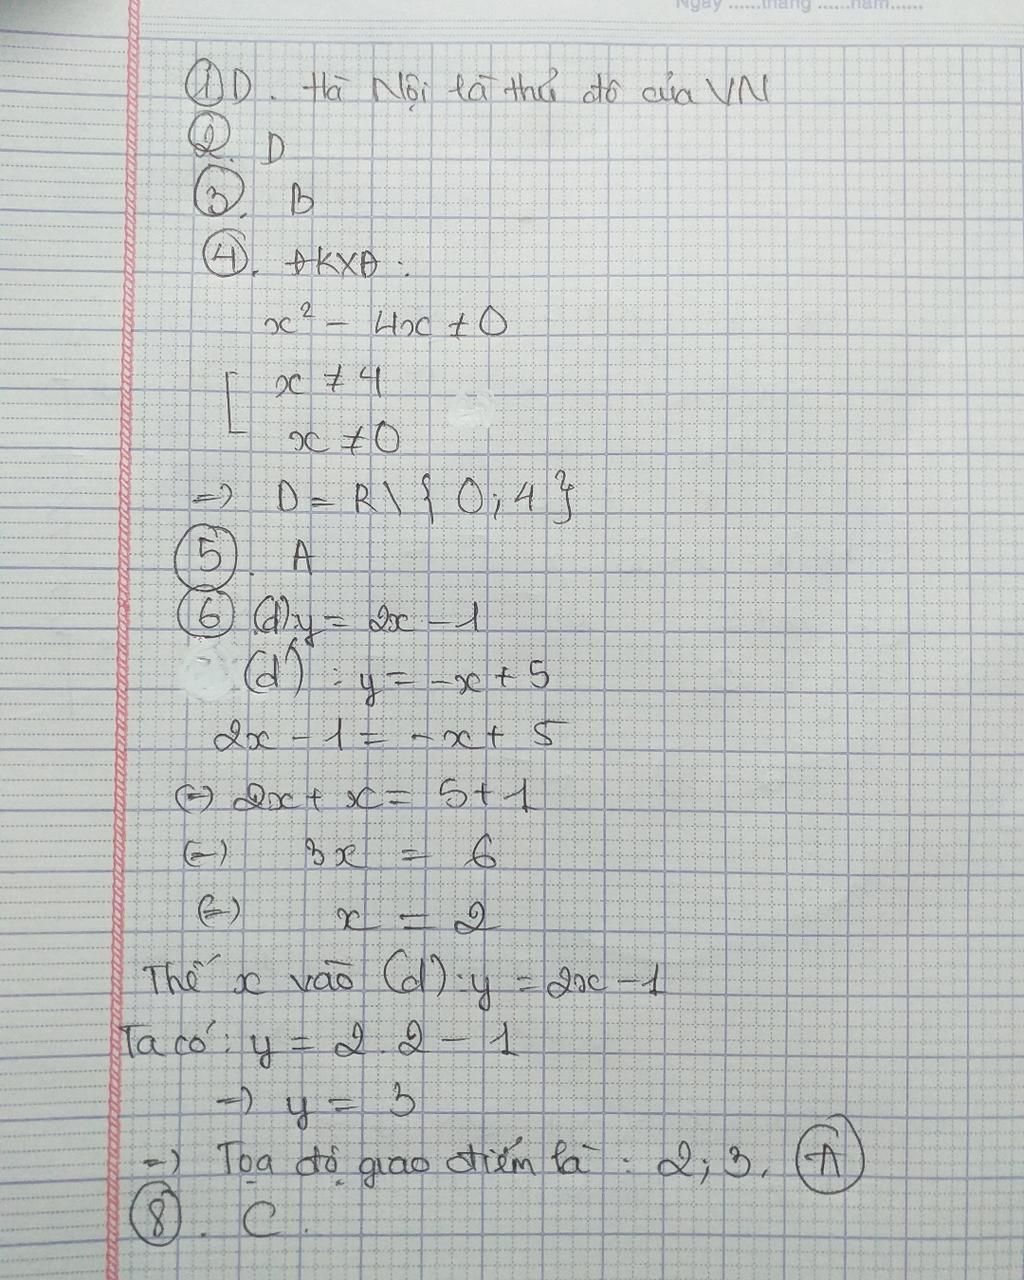 Ngày ......tháng ......năm......
① D. Hà Nội là thủ đô của VN
②. D
③. B
④. ĐKXĐ :
x² - 4x ≠ 0
[ x ≠ 4
x ≠ 0
=) D = R \ { 0 ; 4 }
⑤. A
⑥ (d) y = 2x - 1
(d') : y = -x + 5
2x - 1 = -x + 5
(=) 2x + x = 5 + 1
(=) 3x = 6
(=) x = 2
Thế x vào (d) : y = 2x - 1
Ta có : y = 2 . 2 - 1
=) y = 3
=) Tọa độ giao điểm là : 2 ; 3. Ⓐ
⑧. C.